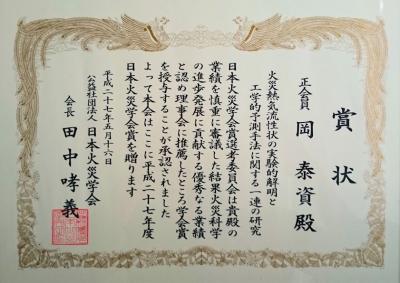 賞状
正会員 岡 泰資殿
火災熱気流性状の実験的解明と
工学的予測手法に関する一連の研究
日本火災学会賞選考委員会は貴殿の
業績を慎重に審議した結果火災科学
の進歩発展に貢献する優秀なる業績
と認め理事会に推薦したところ学会賞
を授与することが承認されました
よって本会はここに平成二十七年度
日本火災学会賞を贈ります
平成二十七年五月十六日
公益社団法人 日本火災学会
会長 田中哮義